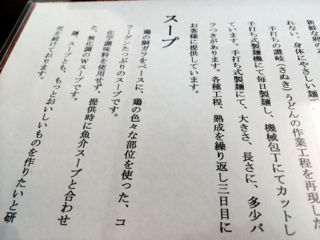 れない、身体にやさしい麺
手打ちの讃岐(さぬき)うどんの作業工程を再現した
手打ち式製麺機にて毎日製麺し、機械包丁にてカットし
ています。手打ち式製麺にて、大きさ、長さに、多少バ
ラつきがあります。各種工程、熟成を繰り返し三日目に
お客様に提供しています。
スープ
鶏の胴ガラをベースに、鶏の色々な部位を使った、コ
ラーゲンたっぷりのスープです。
化学調味料を使用せず、提供時に魚介スープと合わせ
た、無化調のWスープです。
麺、スープとも、もっとおいしいものを作りたいと研
究を続けております。